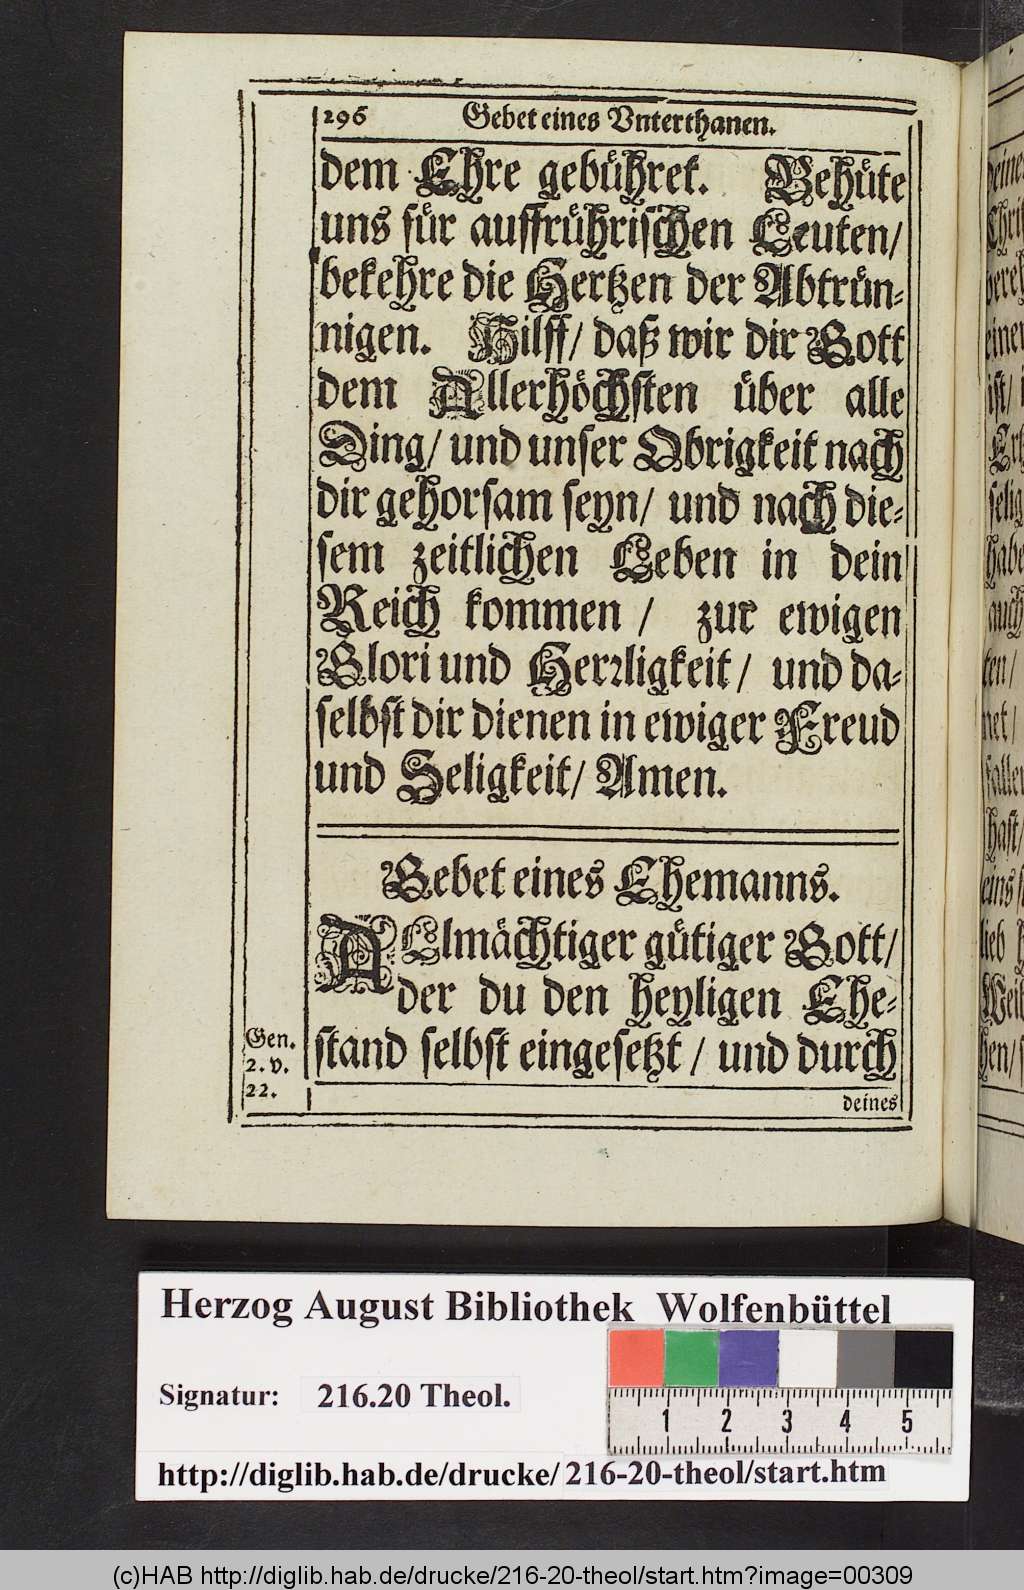 296 Gebet eines Vnterthanen.
dem Ehre gebühret. Behüte
uns für auffrührischen Leuten/
bekehre die Hertzen der Abtrün-
nigen. Hilff/ daß wir dir Gott
dem Allerhöchsten über alle
Ding/ und unser Obrigkeit nach
dir gehorsam seyn/ und nach die-
sem zeitlichen Leben in dein
Reich kommen / zur ewigen
Glori und Herrligkeit/ und da-
selbst dir dienen in ewiger Freud
und Seligkeit/ Amen.
Gebet eines Ehemanns.
ALlmächtiger gütiger Gott/
der du den heyligen Ehe-
stand selbst eingesetzt / und durch
Gen.
2. v.
22.
deines
Herzog August Bibliothek Wolfenbüttel
Signatur: 216.20 Theol.
1 2 3 4 5
http://diglib.hab.de/drucke/216-20-theol/start.htm
(c)HAB http://diglib.hab.de/drucke/216-20-theol/start.htm?image=00309